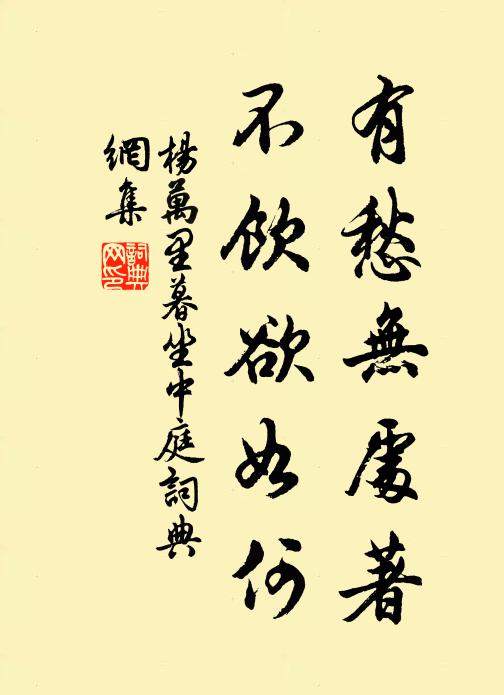 有愁無處著
不飲欲如何
楊萬里暮坐中庭詞典
網集
詞典
网印